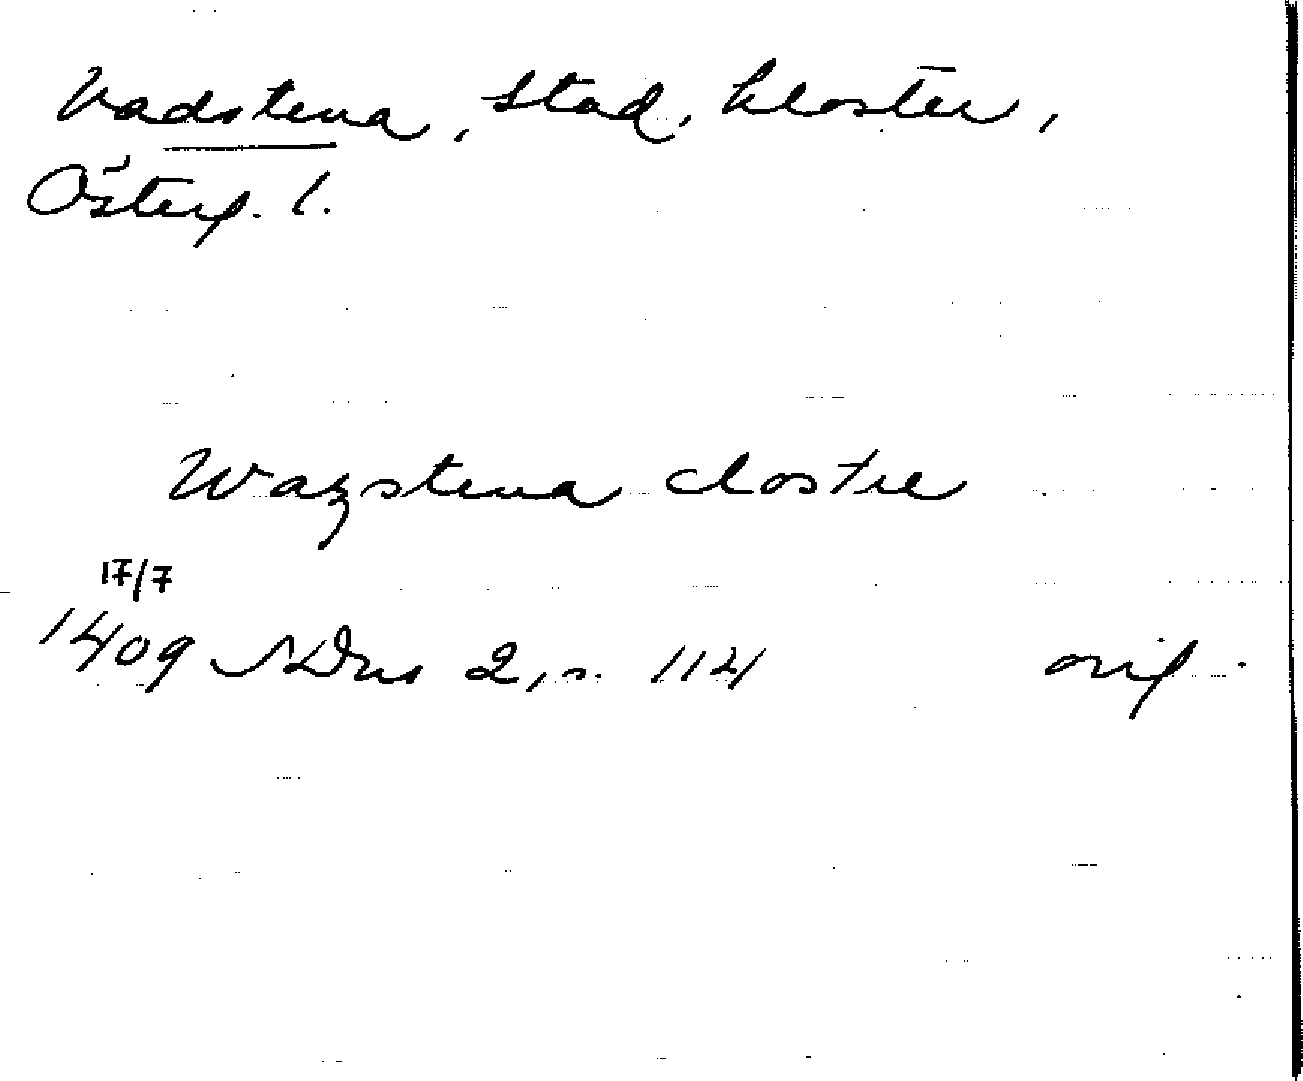 Vadstena, stad, kloster,
Österg. l.
Wazstena clostre
17/7
1409 NDns 2, s. 114 orig.